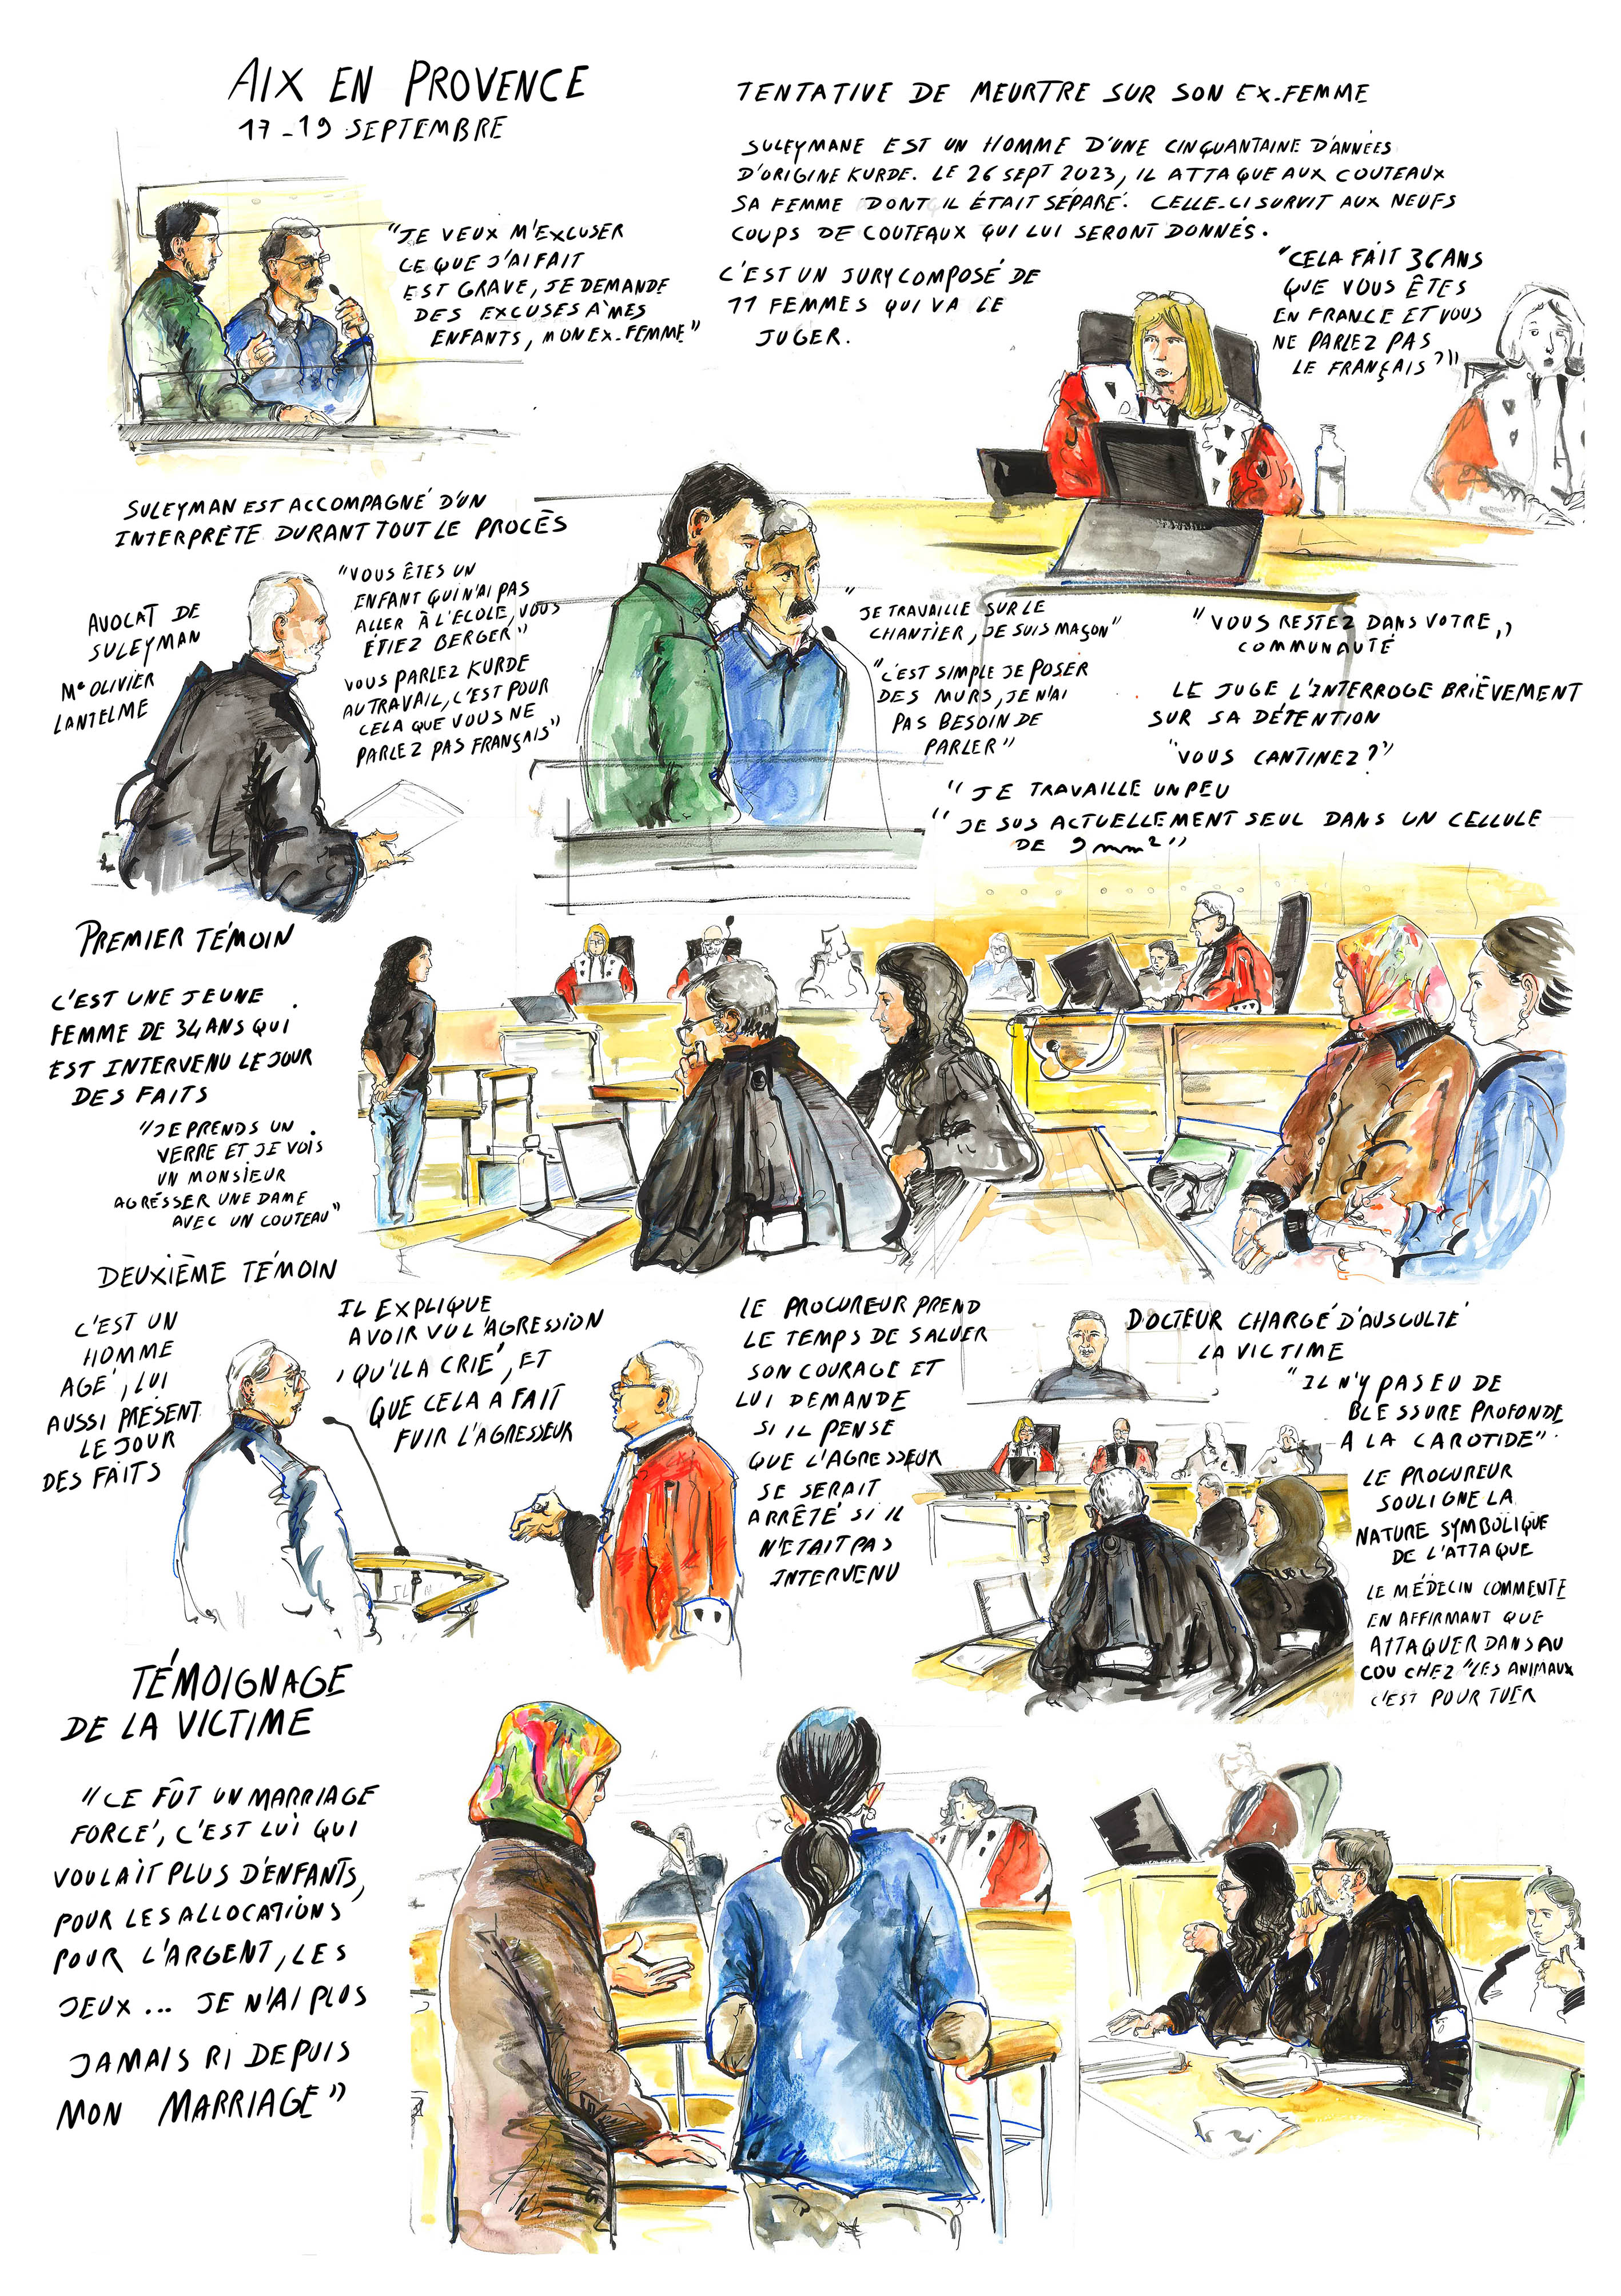 AIX EN PROVENCE
17-19 SEPTEMBRE
"JE VEUX M'EXCUSER
CE QUE J'AI FAIT
EST GRAVE, JE DEMANDE
DES EXCUSES À MES
ENFANTS, MON EX-FEMME"
TENTATIVE DE MEURTRE SUR SON EX-FEMME
SULEYMANE EST UN HOMME D'UNE CINQUANTAINE D'ANNÉES
D'ORIGINE KURDE. LE 26 SEPT 2023, IL ATTAQUE AUX COUTEAUX
SA FEMME DONT IL ÉTAIT SÉPARÉ. CELLE-CI SURVIT AUX NEUFS
COUPS DE COUTEAUX QUI LUI SERONT DONNÉS.
C'EST UN JURY COMPOSÉ DE
11 FEMMES QUI VA LE
JUGER.
"CELA FAIT 36 ANS
QUE VOUS ÊTES
EN FRANCE ET VOUS
NE PARLEZ PAS
LE FRANÇAIS?"
SULEYMAN EST ACCOMPAGNÉ D'UN
INTERPRETE DURANT TOUT LE PROCÈS
AVOCAT DE
SULEYMAN
Me OLIVIER
LANTELME
"VOUS ÊTES UN
ENFANT QUI N'AI PAS
ALLER À L'ECOLE, VOUS
ÉTIEZ BERGER"
VOUS PARLEZ KURDE
AU TRAVAIL, C'EST POUR
CELA QUE VOUS NE
PARLEZ PAS FRANÇAIS"
"JE TRAVAILLE SUR LE
CHANTIER, JE SUIS MAÇON"
"C'EST SIMPLE JE POSER
DES MURS, JE N'AI
PAS BESOIN DE
PARLER"
"VOUS RESTEZ DANS VOTRE,,
COMMUNAUTÉ
LE JUGE L'INTERROGE BRIÈVEMENT
SUR SA DÉTENTION
"VOUS CANTINEZ?"
"JE TRAVAILLE UN PEU
"JE SUS ACTUELLEMENT SEUL DANS UN CELLULE
DE 9 mm²"
PREMIER TÉMOIN
C'EST UNE JEUNE
FEMME DE 34 ANS QUI
EST INTERVENU LE JOUR
DES FAITS
"JE PRENDS UN
VERRE ET JE VOIS
UN MONSIEUR
AGRÉSSER UNE DAME
AVEC UN COUTEAU"
DEUXIÈME TÉMOIN
C'EST UN
HOMME
AGÉ, LUI
AUSSI PRÉSENT
LE JOUR
DES FAITS
IL EXPLIQUE
AVOIR VU L'AGRESSION
, QU'IL A CRIÉ, ET
QUE CELA A FAIT
FUIR L'AGRESSEUR
LE PROCUREUR PREND
LE TEMPS DE SALUER
SON COURAGE ET
LUI DEMANDE
SI IL PENSE
QUE L'AGRESSEUR
SE SERAIT
ARRÊTÉ SI IL
N'ETAIT PAS
INTERVENU
DOCTEUR CHARGÉ D'AUSCULTÉ
LA VICTIME
"IL N'Y PAS EU DE
BLESSURE PROFONDE
A LA CAROTIDE".
LE PROCUREUR
SOULIGNE LA
NATURE SYMBOLIQUE
DE L'ATTAQUE
LE MÉDECIN COMMENTE
EN AFFIRMANT QUE
ATTAQUER DANS AU
COU CHEZ "LES ANIMAUX
C'EST POUR TUER
TÉMOIGNAGE
DE LA VICTIME
"CE FÛT UN MARRIAGE
FORCÉ, C'EST LUI QUI
VOULAIT PLUS D'ENFANTS,
POUR LES ALLOCATIONS
POUR L'ARGENT, LES
JEUX... JE N'AI PLUS
JAMAIS RI DEPUIS
MON MARRIAGE"